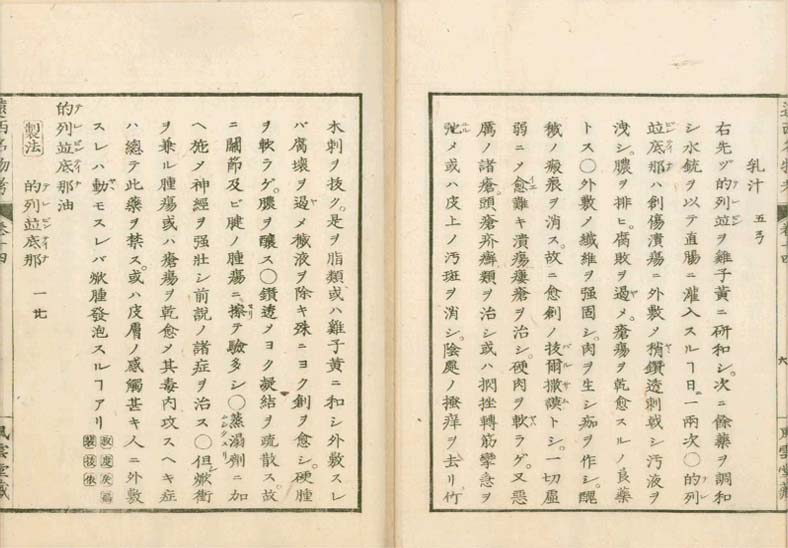 乳汁 五ヲ
右先ヅ的列並ヲ雞子黄ニ研和シ。次ニ餘藥ヲ調和
シ水銃ヲ以テ直腸ニ灌入スルヿ日。一兩次〇的列
並底那ハ創傷潰瘍ニ外敷メ稍鑽透刺戟シ汚液ヲ
洩シ。膿ヲ排ヒ。腐敗ヲ遏メ。瘡瘍ヲ乾愈スルノ良藥
トス〇外敷メ纖維ヲ强固シ。肉ヲ生シ痂ヲ作シ。醜
穢ノ瘢痕ヲ消ス。故ニ愈創ノ技爾撒謨トシ。一切虛
弱ニメ愈難キ潰瘍瘻瘡ヲ治シ。硬肉ヲ軟ラゲ。又惡
厲ノ諸瘡。頭瘡疥癬類ヲ治シ或ハ捫挫轉筋攣急ヲ
弛メ或ハ皮上ノ汚斑ヲ消シ。陰處ノ搔痒ヲ去リ竹
遠西名物考 卷十四 六 風雲堂藏
木刺ヲ拔ク。是ヲ脂類或ハ雞子黄ニ和シ外敷スレ
バ腐壞ヲ遏メ穢液ヲ除キ殊ニヨク創ヲ愈シ。硬腫
ヲ軟ラゲ。膿ヲ釀ス〇鑽透メヨク凝結ヲ疏散ス。故
ニ關節及ビ腱ノ腫瘍ニ擦テ驗多シ〇蒸溻劑ニ加
ヘ施メ神經ヲ强壯シ前說ノ諸症ヲ治ス〇但シ焮衝
ヲ兼ル腫瘍或ハ瘡瘍ヲ乾愈メ其毒内攻スヘキ症
ハ總テ此藥ヲ禁ス。或ハ皮膚ノ感觸甚キ人ニ外敷
スレハ動モスレバ焮腫發泡スルヿアリ
的列並底那油
製法 的列並底那 一
遠西名物考 卷十四 風雲堂藏